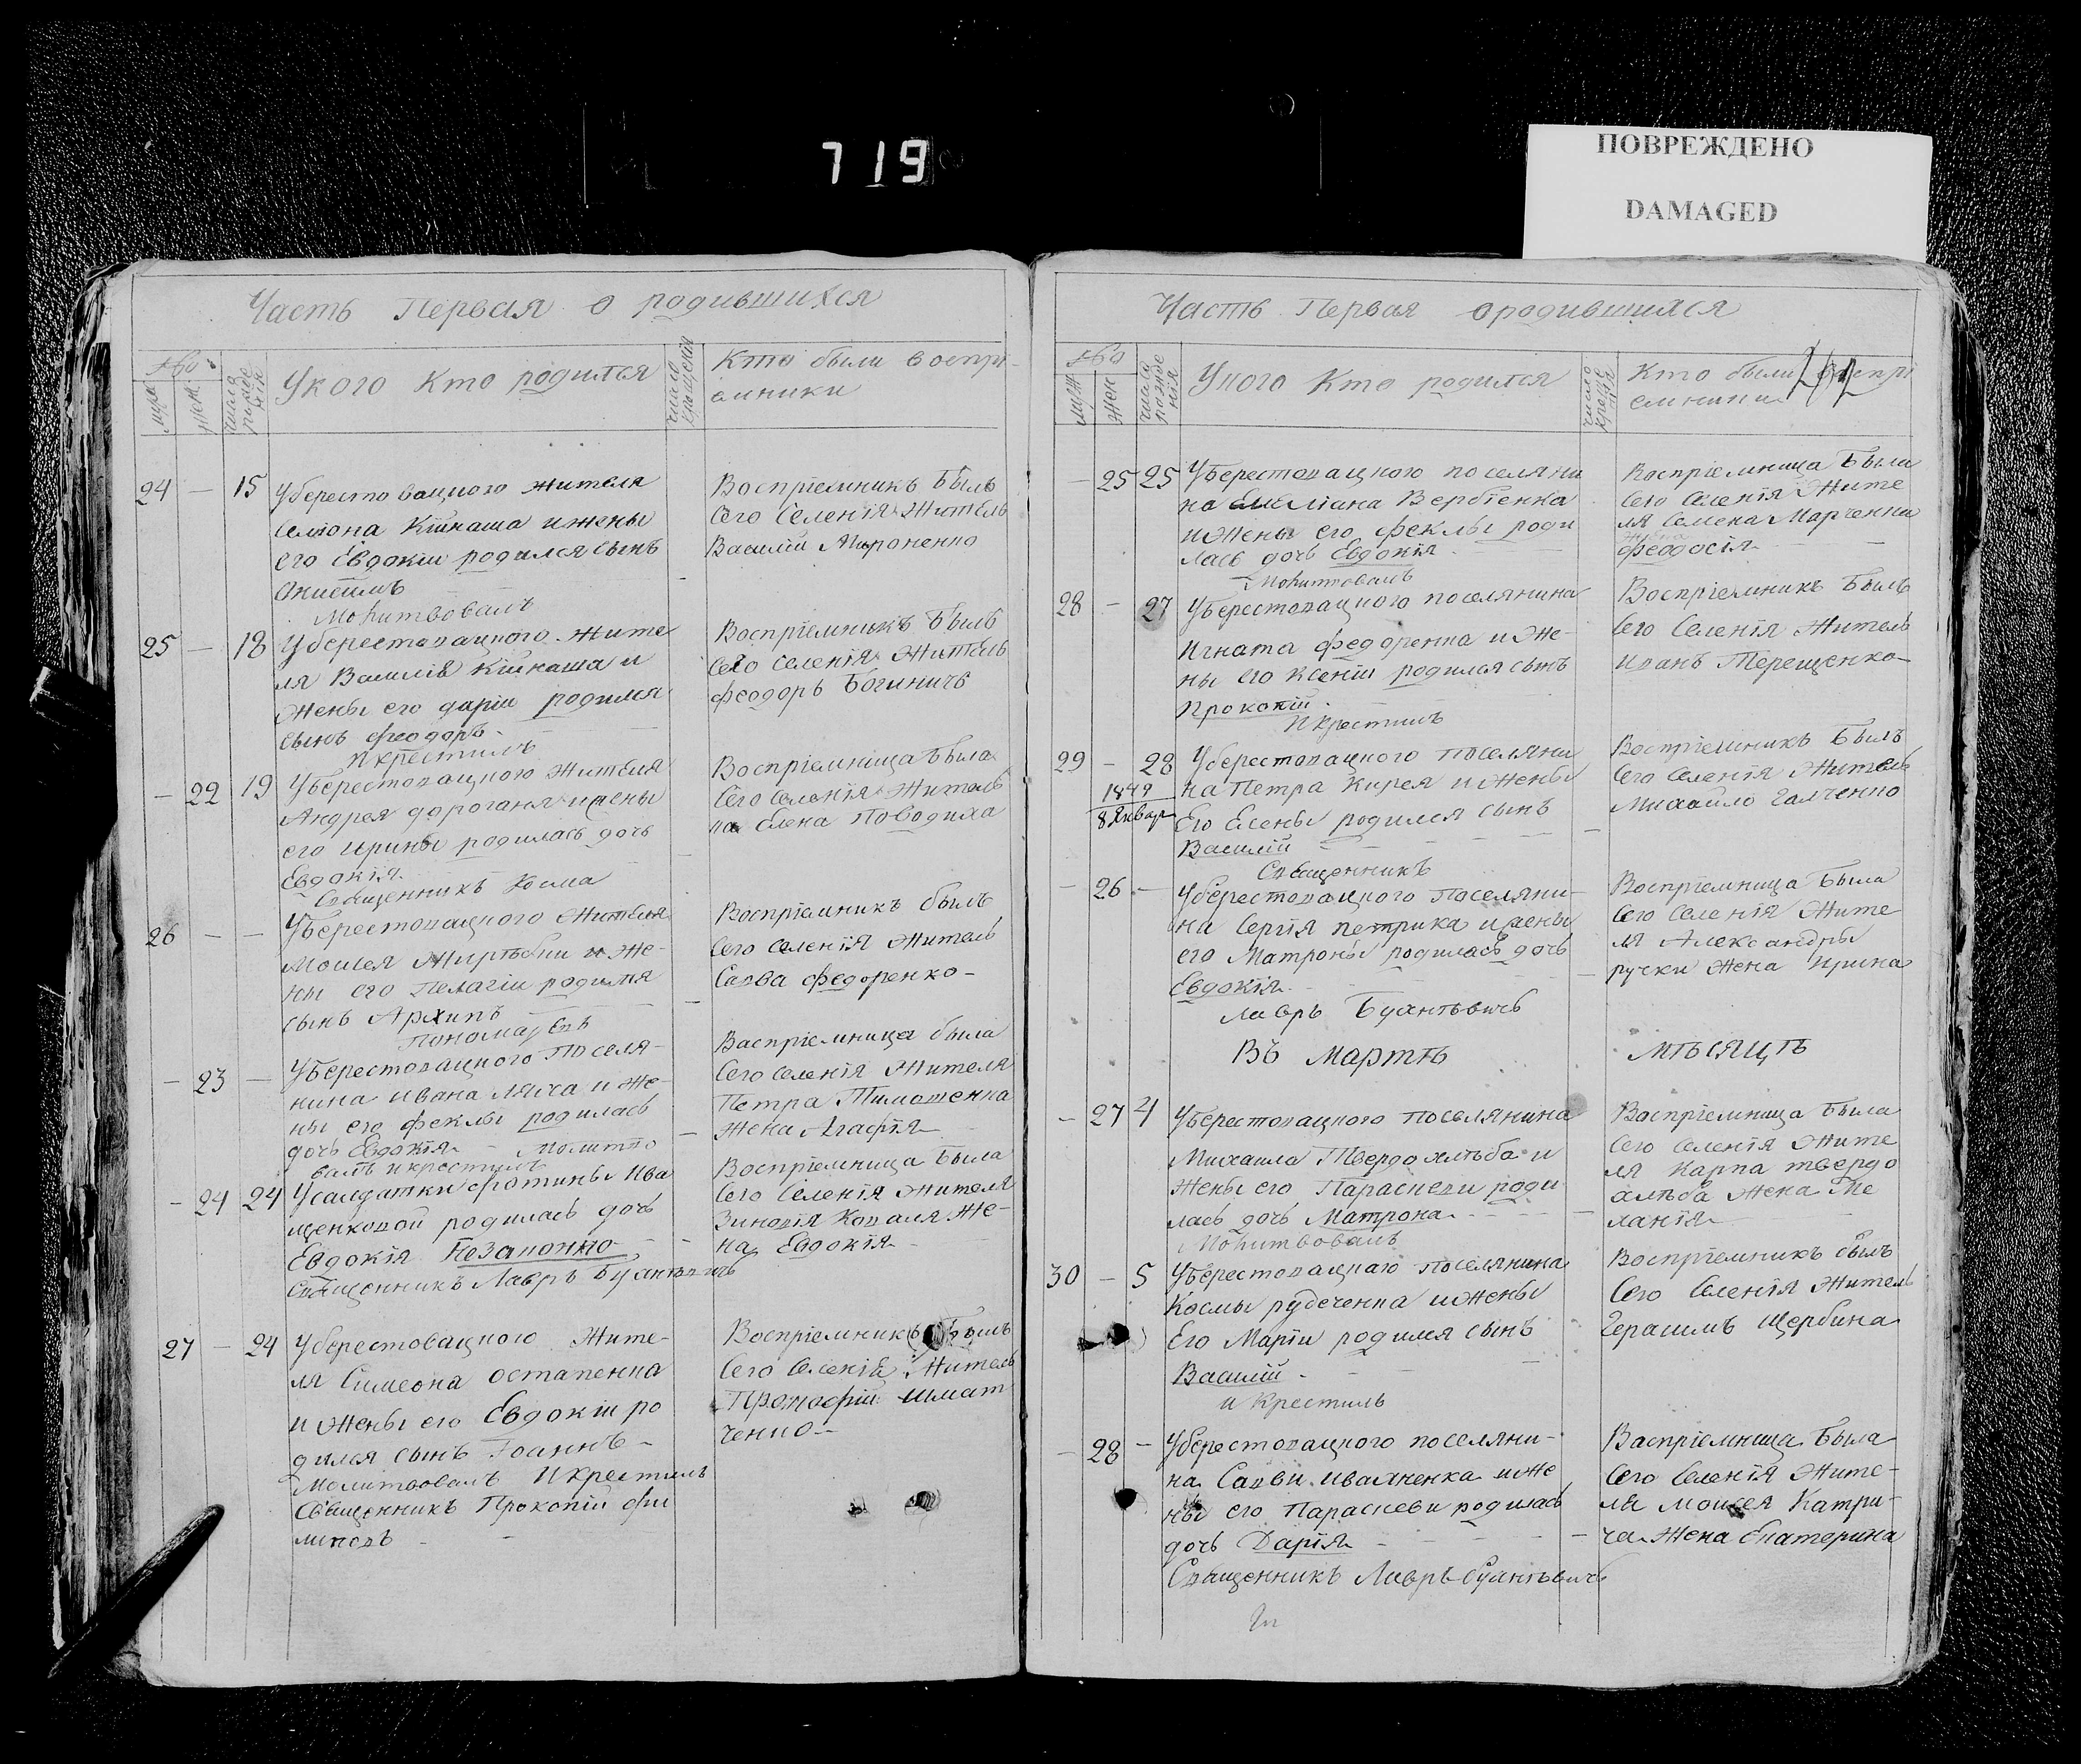 719
ПОВРЕЖДЕНО
DAMAGED
Часть Первая о родившихся
№
муж
жен
У кого кто родился
Кто были воспрі-
емники
24 — 15 Уберестовацкого жителя
Семіона Кійкаша и жены
его Евдокіи родился сынъ
Анисимъ
Молитвовалъ
Воспріемникъ былъ
сего селенія житель
Василій Мироненко
25 — 18 Уберестовацкого жите
ля Василія Кійкаша и
жены его даріи родился
сынъ феодоръ
и крестилъ
Воспріемникъ былъ
сего селенія житель
феодоръ Богиничъ
— 22 19 Уберестовацкого жителя
Андрея дороганя и жены
его ирины родилась дочь
Евдокія
Священникъ Косма
Воспріемница была
сего селенія житель
ка Елена Поводиха
26 — — Уберестовацкого жителя
Моисея и же-
ны его Пелагіи родился
сынъ Архипъ
пономарь
Воспріемникъ былъ
сего селенія житель
Савва федоренко
— 23 — Уберестовацкого поселя-
нина ивана ляха и же-
ны его феклы родилась
дочь Евдокія молитво
валъ и крестилъ
Воспріемница была
сего селенія жителя
Петра Тимошенка
жена Агафія
— 24 24 У салдатки фотины Ива
щенковой родилась дочь
Евдокія Незаконно
Священникъ Лавръ Буантовичъ
Воспріемница была
сего селенія жителя
Зиновія Коваля же-
на Евдокія
27 — 24 Уберестовацкого жите-
ля Симеона остапенка
и жены его Евдокіи ро
дился сынъ Іоаннъ
Молитвовалъ и крестилъ
Священникъ Прокопій фи
липовъ
Воспріемникъ былъ
сего селенія житель
Прокофій шмат
ченко
Часть Первая о родившихся
№
муж
жен
У кого кто родился
Кто были воспрі
емники
— 25 25 Уберестовацкого поселяни
на Емиліана Вербіенка
и жены его феклы роди
лась дочь Евдокія
Молитвовалъ
Воспріемница была
сего селенія жите
ля Семена Марченка
жена
феодосія
28 — 27 Уберестовацкого поселянина
Игната федоренка и же-
ны его Ксеніи родился сынъ
Прокопій
и крестилъ
Воспріемникъ былъ
сего селенія житель
иванъ Терещенко
29 — 28 Уберестовацкого поселяни
на Петра Кирея и жены
Его Елены родился сынъ
Василій
Священникъ
1849
8 Январ
Воспріемникъ былъ
сего селенія житель
Михайло Галченко
— 26 — Уберестовацкого поселяни-
на Сергія петрика и жены
его Матроны родилась дочь
Евдокія
Лавръ Буантовичъ
Воспріемница была
сего селенія жите
ля Александры
ручки жена ирина
Въ мартѣ мѣсяцѣ
— 27 4 Уберестовацкого поселянина
Михаила Твердохлѣба и
жены его Параскевы роди
лась дочь Матрона
Молитвовалъ
Воспріемница была
сего селенія жите
ля Карпа твердо
хлѣба жена Ме
ланія
30 — 5 Уберестовацкаго поселянина
Космы рудеченка и жены
Его Маріи родился сынъ
Василій
и крестилъ
Воспріемникъ былъ
сего селенія житель
герасимъ щербина
— 28 — Уберестовацкого поселяни-
на Саввы иваненка и же
ны его Параскеви родилась
дочь Дарія
Священникъ Лавръ Буантовичъ
Васпріемница была
сего селенія жите-
ля Моисея Катри-
ча жена Екатерина